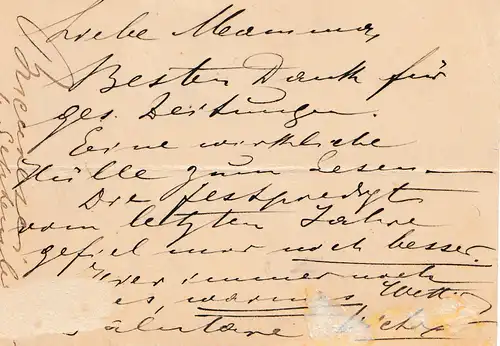 Liebe Mamma,
Besten Dank für
ges. Zeitungen.
Eine wirkliche
Fülle zum Lesen —
Die Festpredigt
vom letzten Jahre
gefiel mir noch besser.
immer noch
es, warmes Wetter
nicht